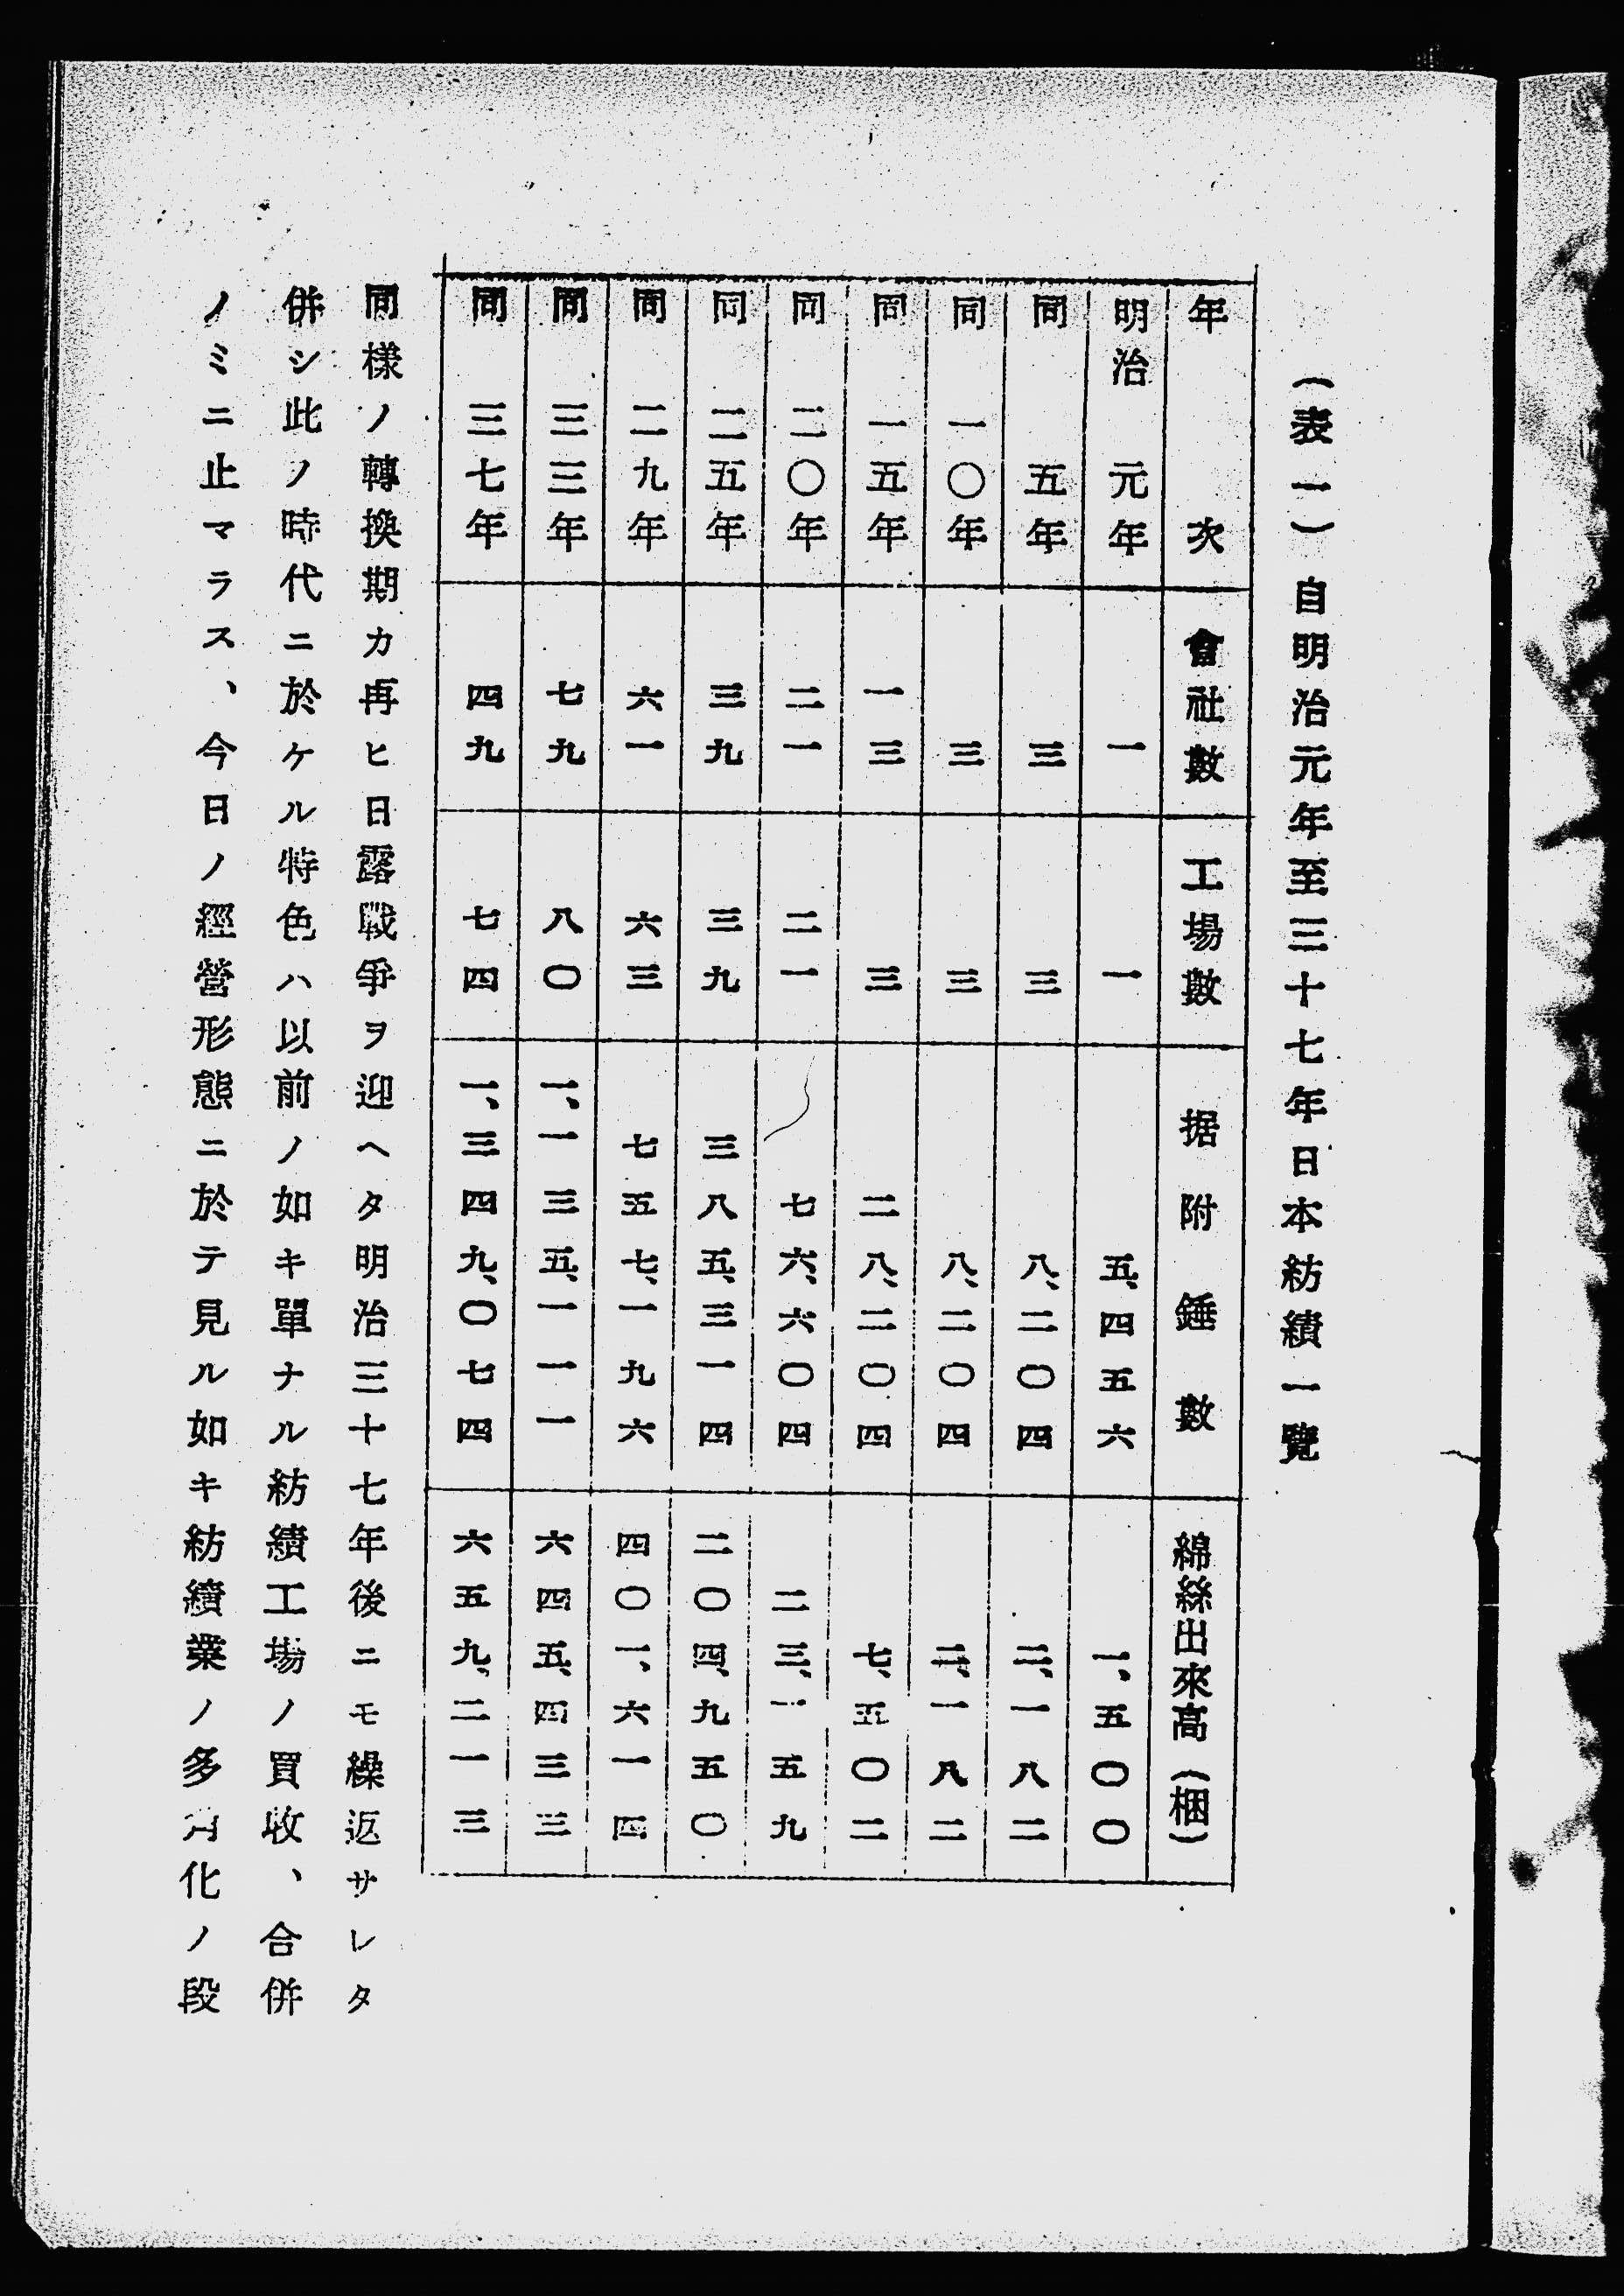 (表一)自明治元年至三十七年日本紡績一覽
年次 會社數 工場數 据附錘數 綿絲出來高(梱)
明治元年 一 一 五、四五六 一、五〇〇
同五年 三 三 八、二〇四 二、一八二
同一〇年 三 三 八、二〇四 二、一八二
同一五年 一三 三 二八、二〇四 七、五〇二
同二〇年 二一 二一 七六、六〇四 二三、一五九
同二五年 三九 三九 三八五、三一四 二〇四、九五〇
同二九年 六一 六三 七五七、一九六 四〇一、六一四
同三三年 七九 八〇 一、一三五、一一一 六四五、四三三
同三七年 四九 七四 一、三四九、〇七四 六五九、二一三
同樣ノ轉換期カ再ヒ日露戰爭ヲ迎ヘタ明治三十七年後ニモ繰返サレタ
併シ此ノ時代ニ於ケル特色ハ以前ノ如キ單ナル紡績工場ノ買收、合併
ノミニ止マラス、今日ノ經營形態ニ於テ見ル如キ紡績業ノ多角化ノ段